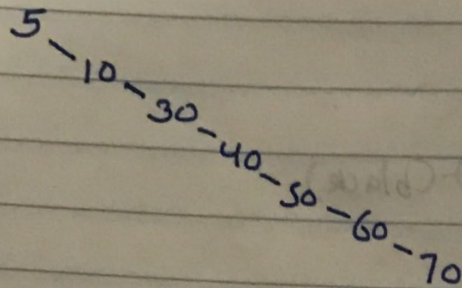 5
10
30
40
50
60
70